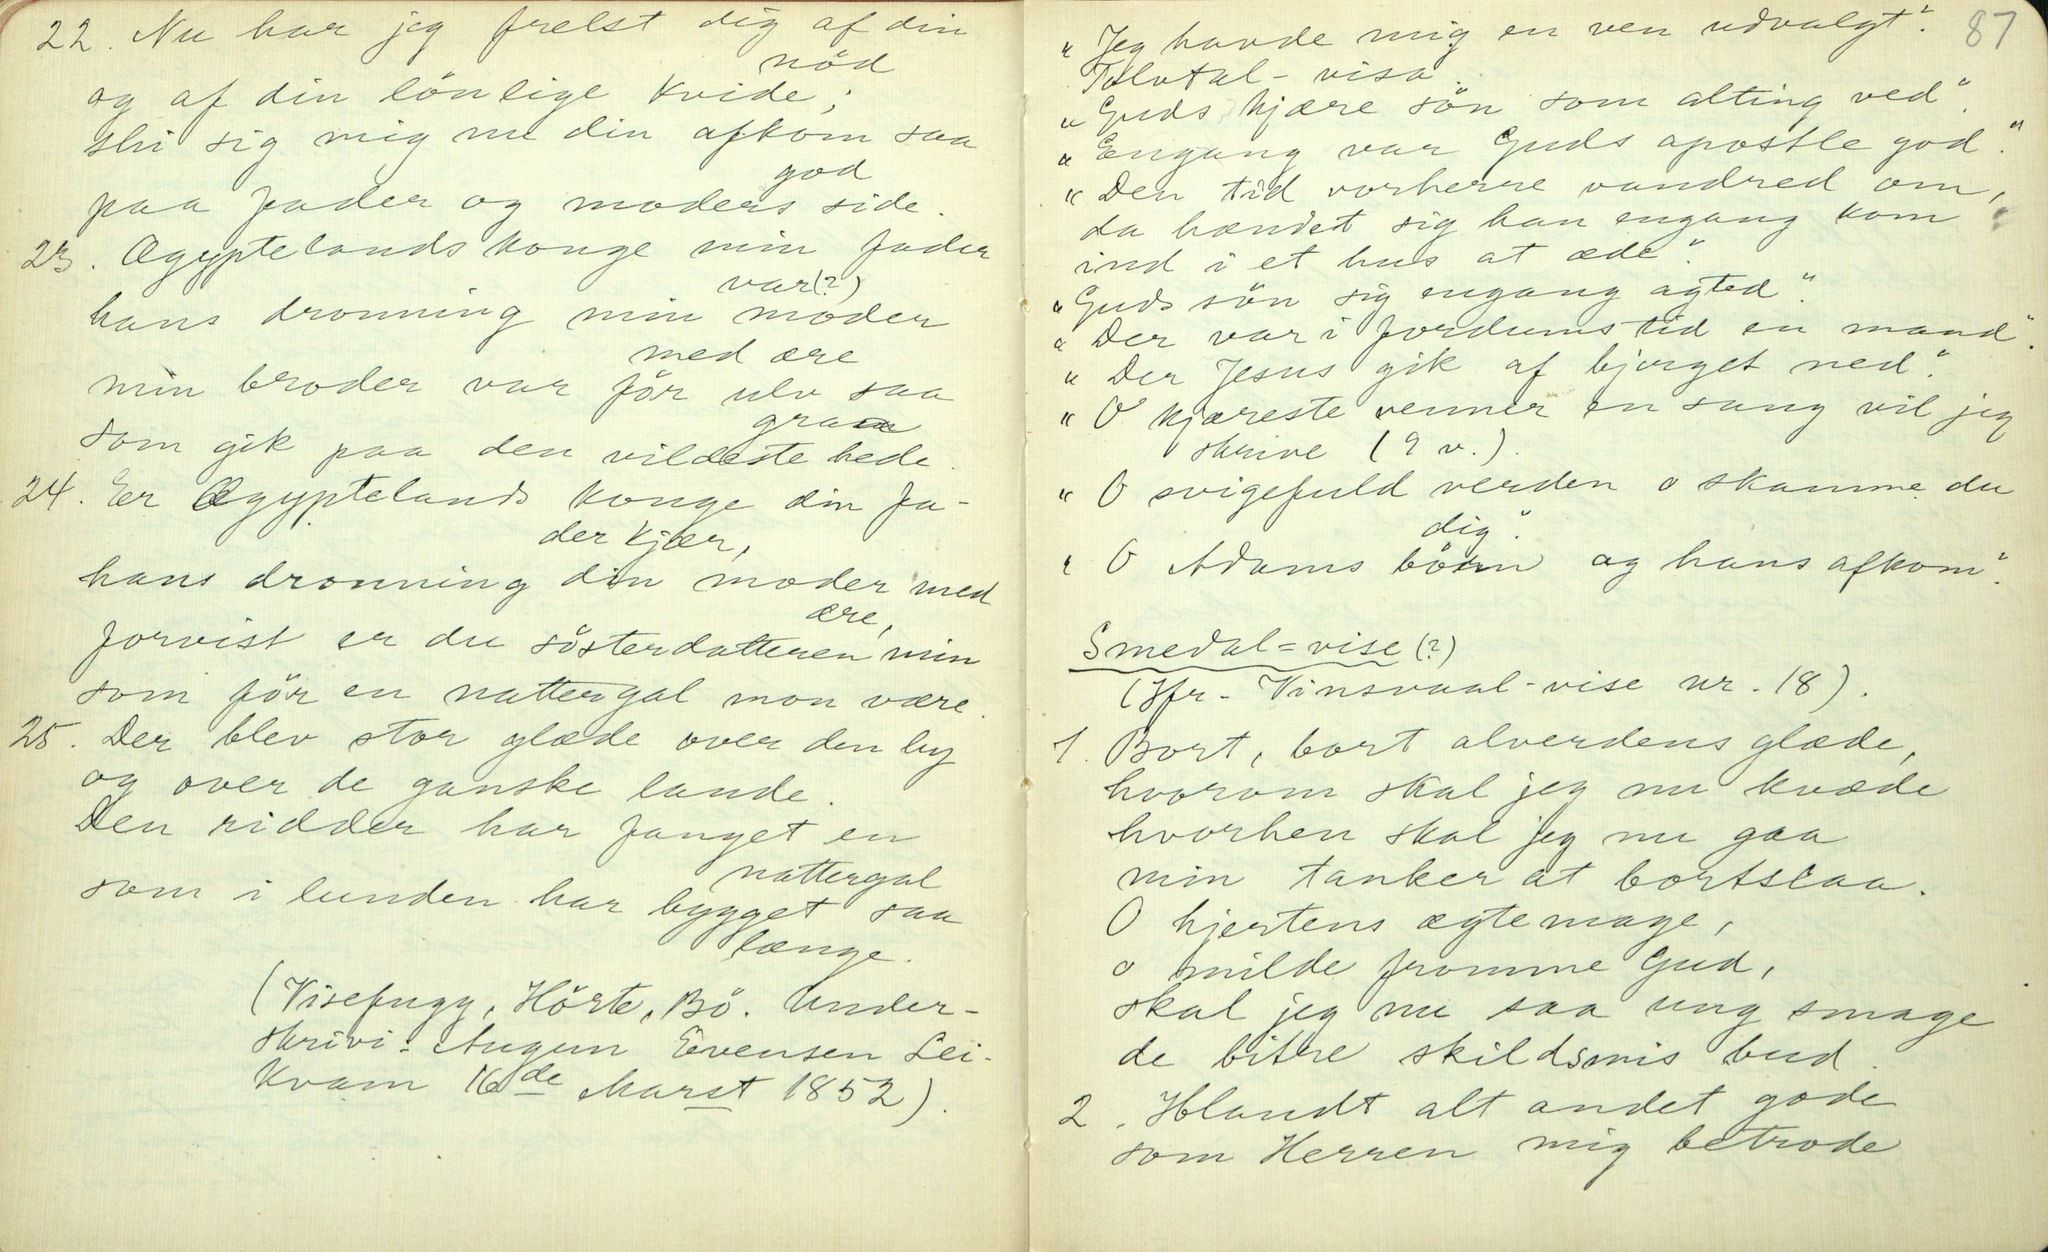 22. Nu har jeg frelst dig af din
nöd
og af din lönlige kvide;
slri sig mig nu din afkom saa
god
paa fader og moders side.
23. Ægyptelands konge min fader
var (?)
hans dronning min moder
med ære
min broder varför ulv saa
graa
som gik paa den vildeste hede.
24. Er Ægyptelands konge din fa-
der kjær,
hans dronning din moder med
ære,
forvist er du sösterdatteren min
som för en nattergal mon være.
25. Der blev stor glæde over den by
og over de ganske lande.
Den ridder har fanget en
nattergal
som i lunden har bygget saa
længe.
(Visefugg, Hörte, Bö. Under-
skrivi: Augun Evensen Lei-
kvam 16de Marst 1852).
87
"Jeg havde mig en ven udvalgt".
Tolvtal-visa.
"Guds kjære sön som alting ved".
"Engang var Guds apostle god".
"Den tid vorherre vandred om,
da hændet sig han engang kom
ind i et hus at æde".
"Guds sön sig engang agted".
"Der var i fordums tid en mand".
"Der Jesus gik af bjerget ned".
"O kjæreste venner en sang vil jeg
skrive (9 v.).
"O svigefuld verden o skamme du
dig".
"O Adams börn og hans afkom".
Smedal=vise (?)
(Jfr. Vinsvaal-vise nr. 18).
1. Bort, bort alverdens glæde,
hvorom skal jeg nu kvæde
hvorhen skal jeg nu gaa
min tanker at bortslaa.
O hjertens ægtemage,
o milde fromme Gud,
skal jeg nu saa ung smage
de bitre skildsmis bud.
2. Blandt alt andet gode
som Herren mig betrode